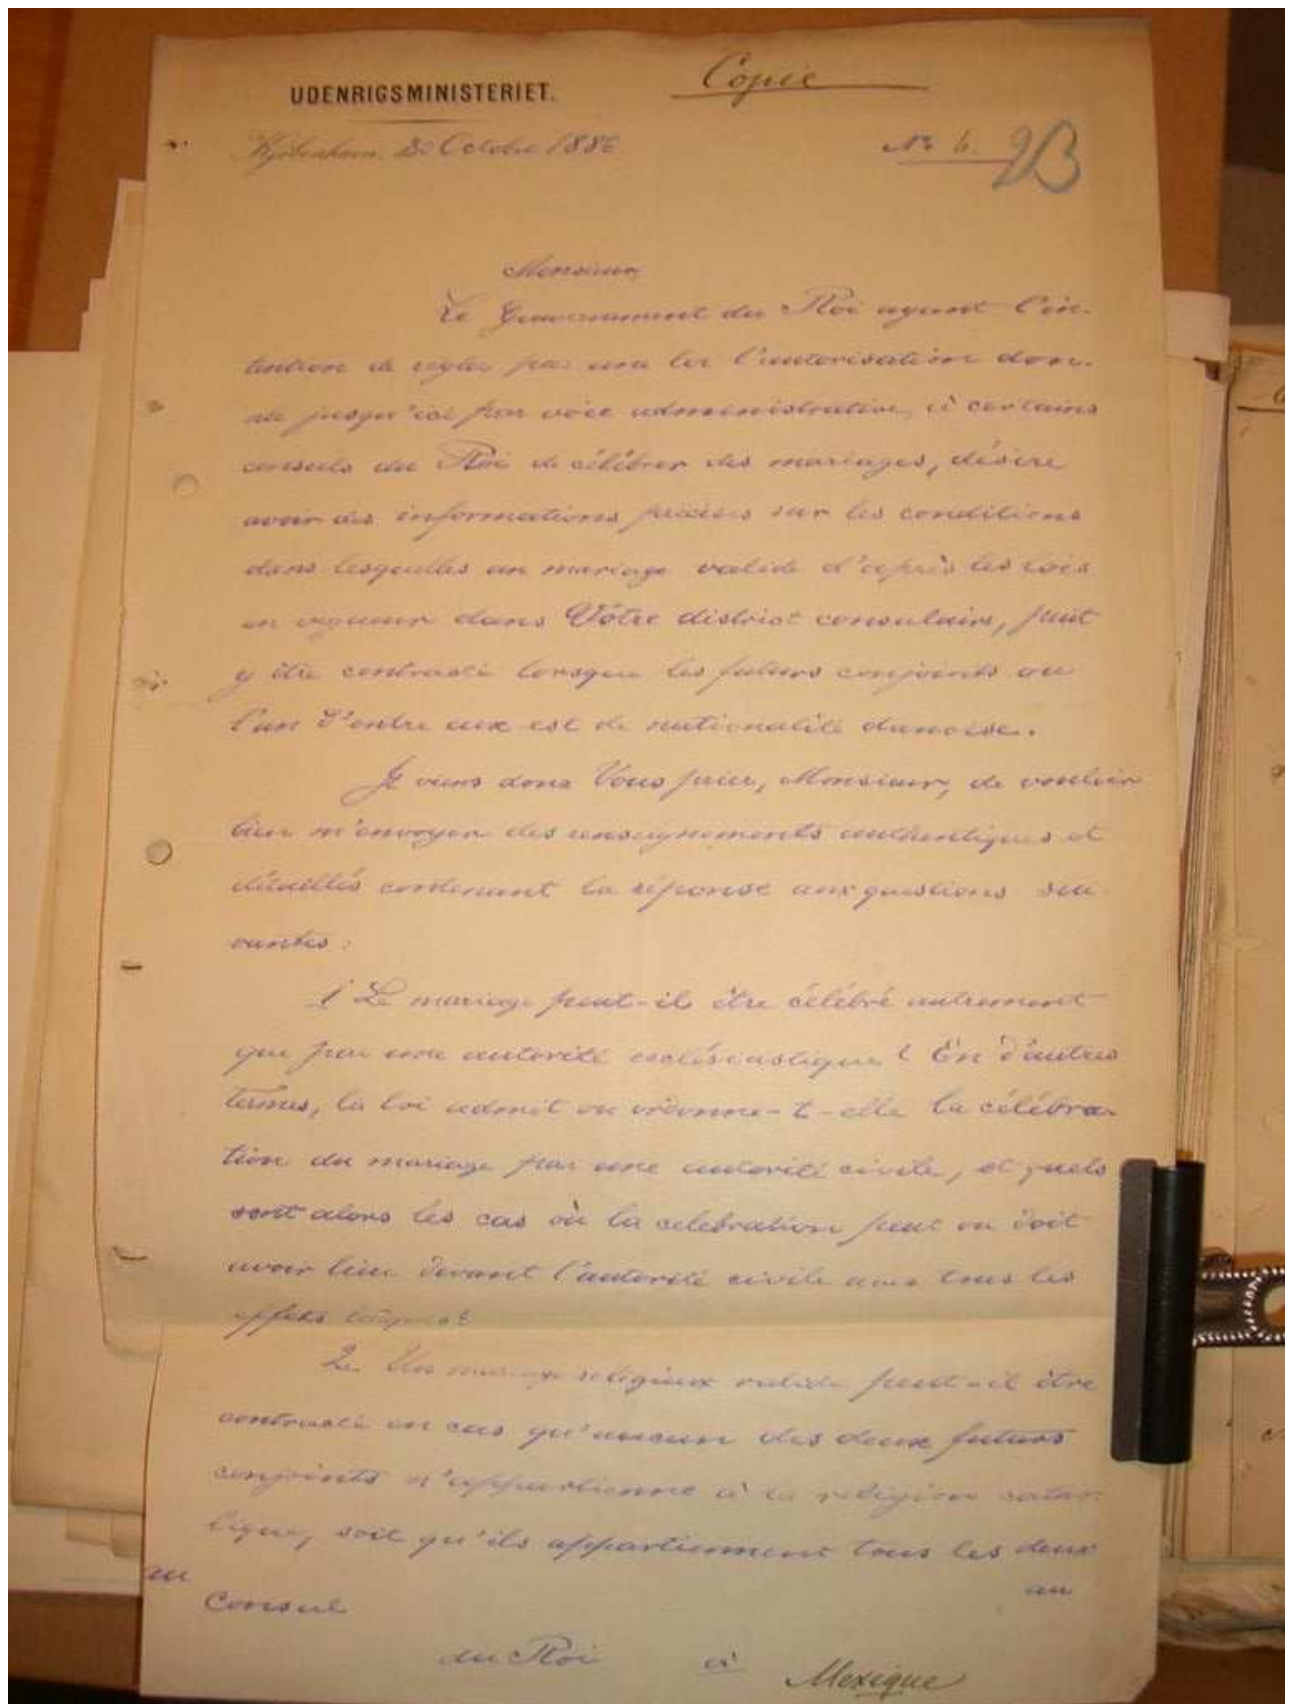 UDENRIGSMINISTERIET.
Copie
Kjøbenhavn, 20 Octobre 1886
No 6.
Monsieur,
Le Gouvernement du Roi ayant l'in-
tention de régler par une loi l'autorisation don-
née jusqu'ici par voie administrative, à certains
consuls du Roi de célébrer des mariages, désire
avoir des informations précises sur les conditions
dans lesquelles un mariage valide d'après les lois
en vigueur dans Votre district consulaire, peut
y être contracté lorsque les futurs conjoints ou
l'un d'entre eux est de nationalité danoise.
Je viens donc Vous prier, Monsieur, de vouloir
bien m'envoyer des renseignements authentiques et
détaillés contenant la réponse aux questions sui-
vantes:
1 Le mariage peut-il être célébré autrement
que par une autorité ecclésiastique? En d'autres
termes, la loi admet ou ordonne-t-elle la célébra-
tion du mariage par une autorité civile, et quels
sont alors les cas où la celebration peut ou doit
avoir lieu devant l'autorité civile avec tous les
effets légaux?
2. Un mariage religieux valide peut-il être
contracté en cas qu'aucun des deux futurs
conjoints n'appartienne à la religion catho-
lique, soit qu'ils appartiennent tous les deux
au
au
Consul
du Roi à Mexique